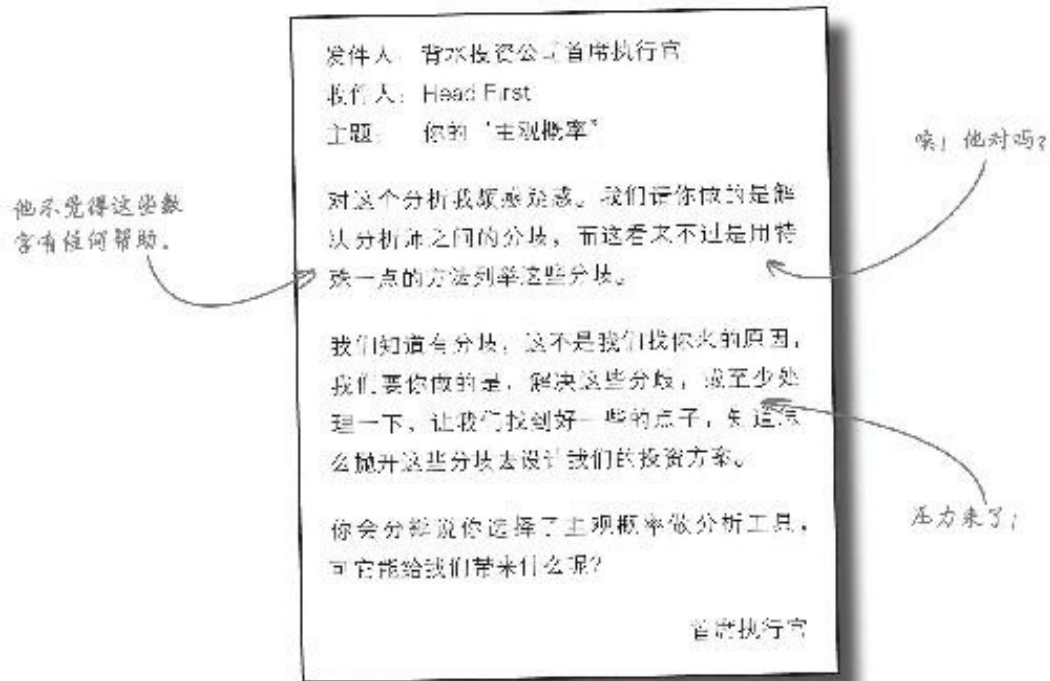 发件人：背水投资公司首席执行官
收件人：Head First
主题： 你的“主观概率”
对这个分析我颇感疑惑。我们请你做的是解
决分析师之间的分歧，而这看来不过是用特
殊一点的方法列举这些分歧。
我们知道有分歧，这不是我们找你来的原因，
我们要你做的是，解决这些分歧，或至少处
理一下，让我们找到好一些的点子，知道怎
么抛开这些分歧去设计我们的投资方案。
你会分辩说你选择了主观概率做分析工具，
可它能给我们带来什么呢？
首席执行官
他不觉得这些数
字有任何帮助。
唉！他对吗？
压力来了！